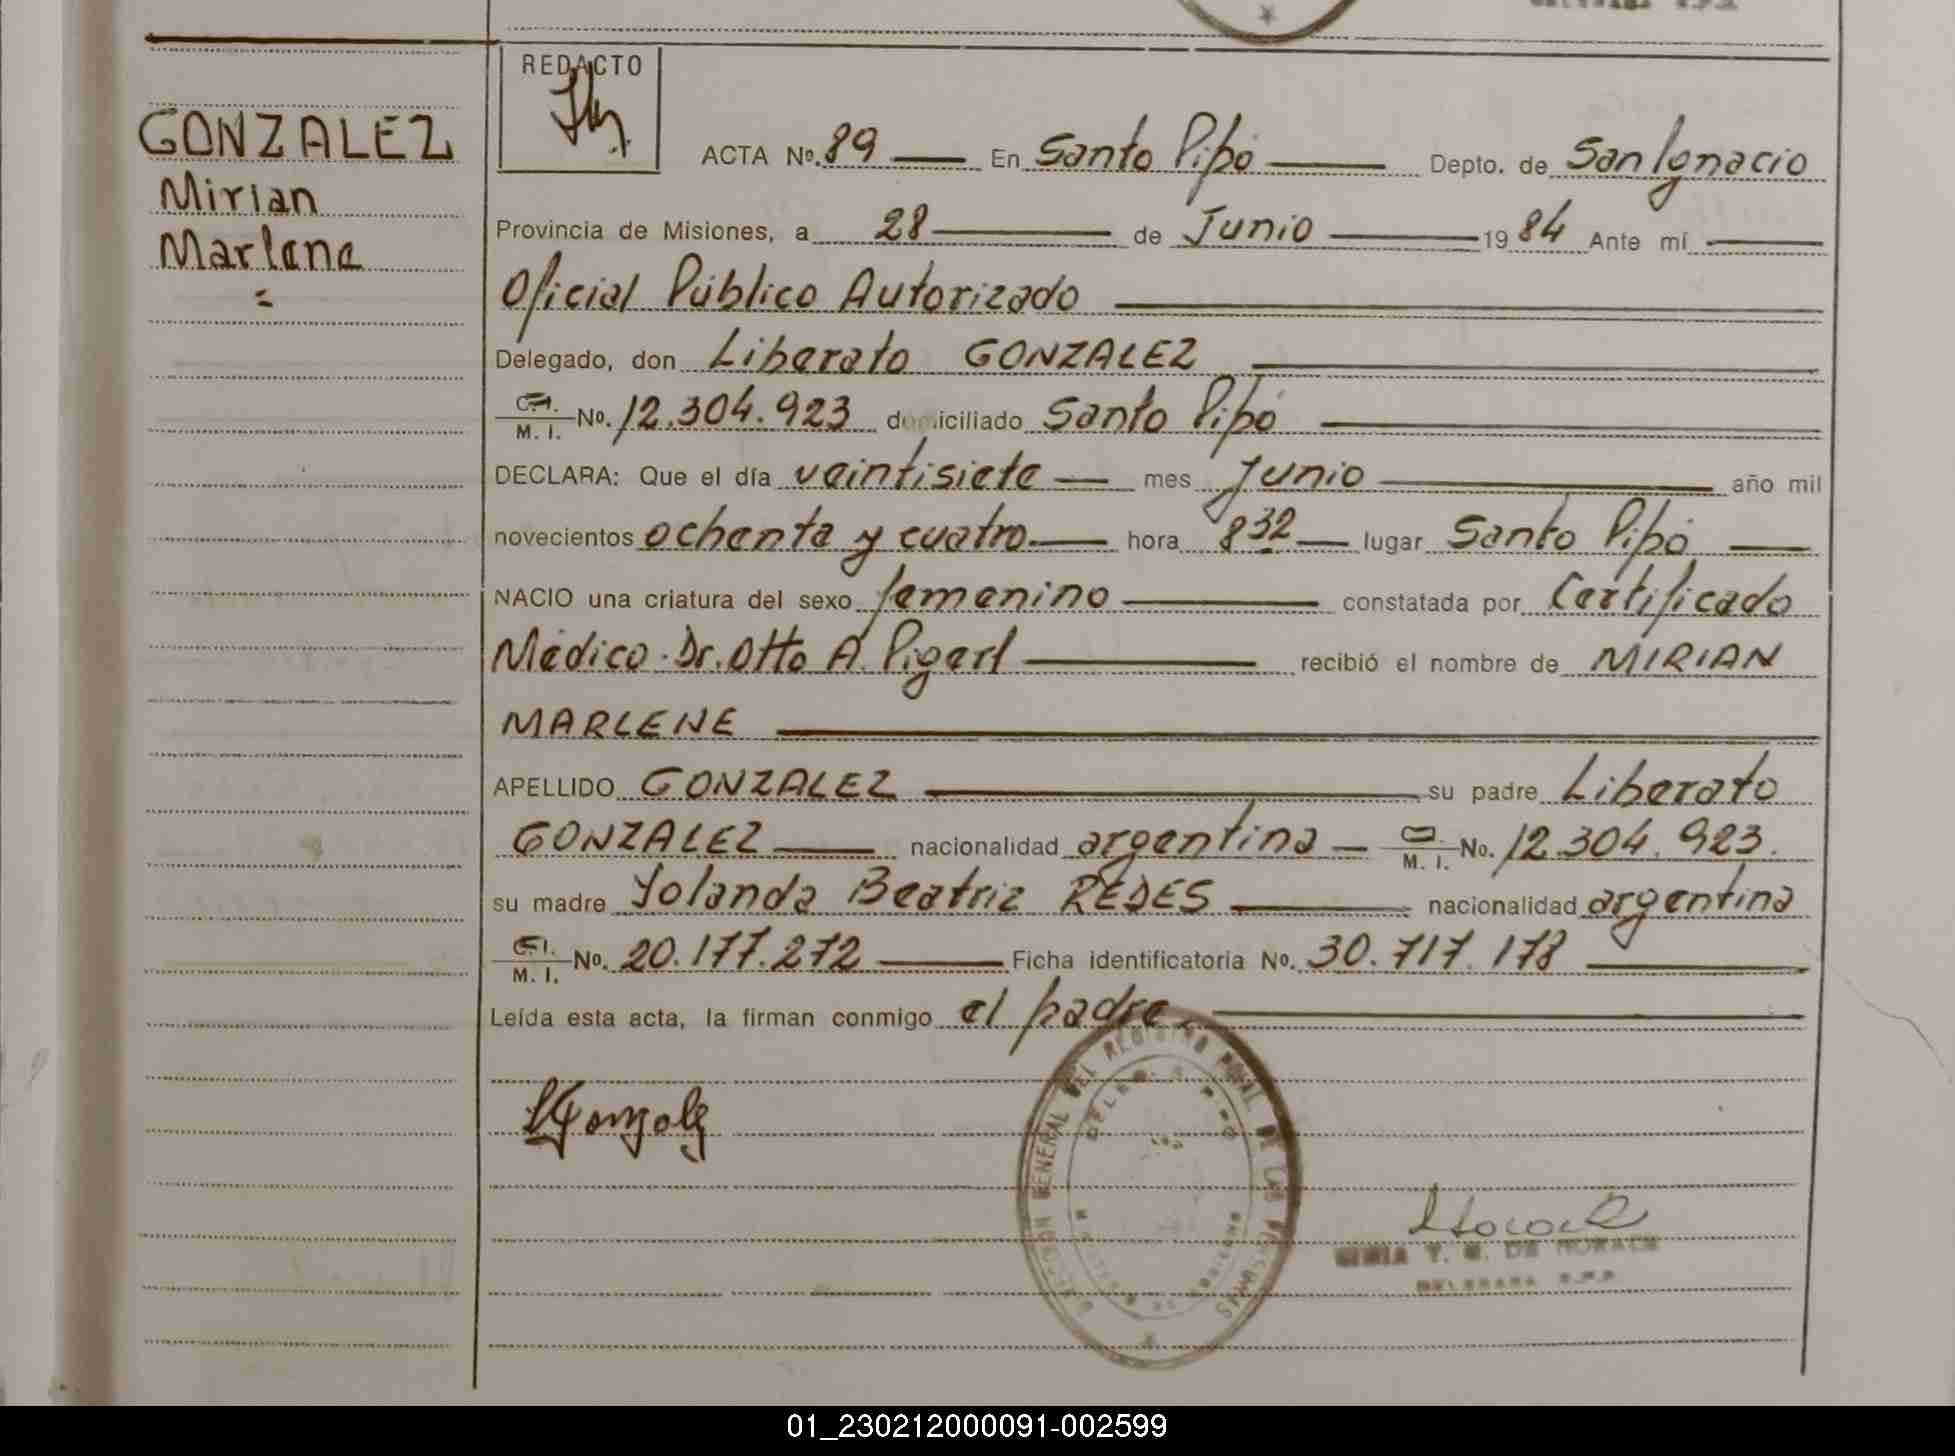 REDACTO
GONZALEZ
Mirian
Marlene
ACTA No. 89 En Santo Pipó Depto. de San Ignacio
Provincia de Misiones, a 28 de Junio 1984 Ante mí
Oficial Público Autorizado
Delegado, don Liberato GONZALEZ
C.I. M. I. No. 12.304.923 domiciliado Santo Pipó
DECLARA: Que el día veintisiete mes Junio año mil
novecientos ochenta y cuatro hora 832 lugar Santo Pipó
NACIO una criatura del sexo femenino constatada por Certificado
Médico. Dr. Otto A. Pigerl recibió el nombre de MIRIAN
MARLENE
APELLIDO GONZALEZ su padre Liberato
GONZALEZ nacionalidad argentina M. I. No. 12.304.923.
su madre Yolanda Beatriz REDES nacionalidad argentina
C.I. M. I. No. 20.177.272 Ficha identificatoria No. 30.717.178
Leída esta acta, la firman conmigo el padre
DIRECCION GENERAL DEL REGISTRO DE LAS PERSONAS
T. DE
01_230212000091-002599